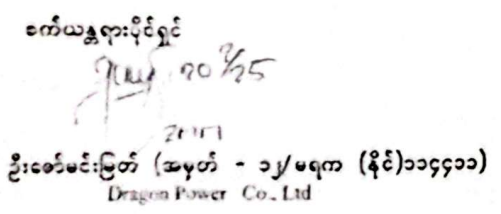 ခက်ယန္တရားပိုင်ရှင်
ဦးဇော်မင်းမြတ် (အမှတ် - ၁၂/မရက (နိုင်)၁၁၄၄၁၁)
Dragon Power Co., Ltd